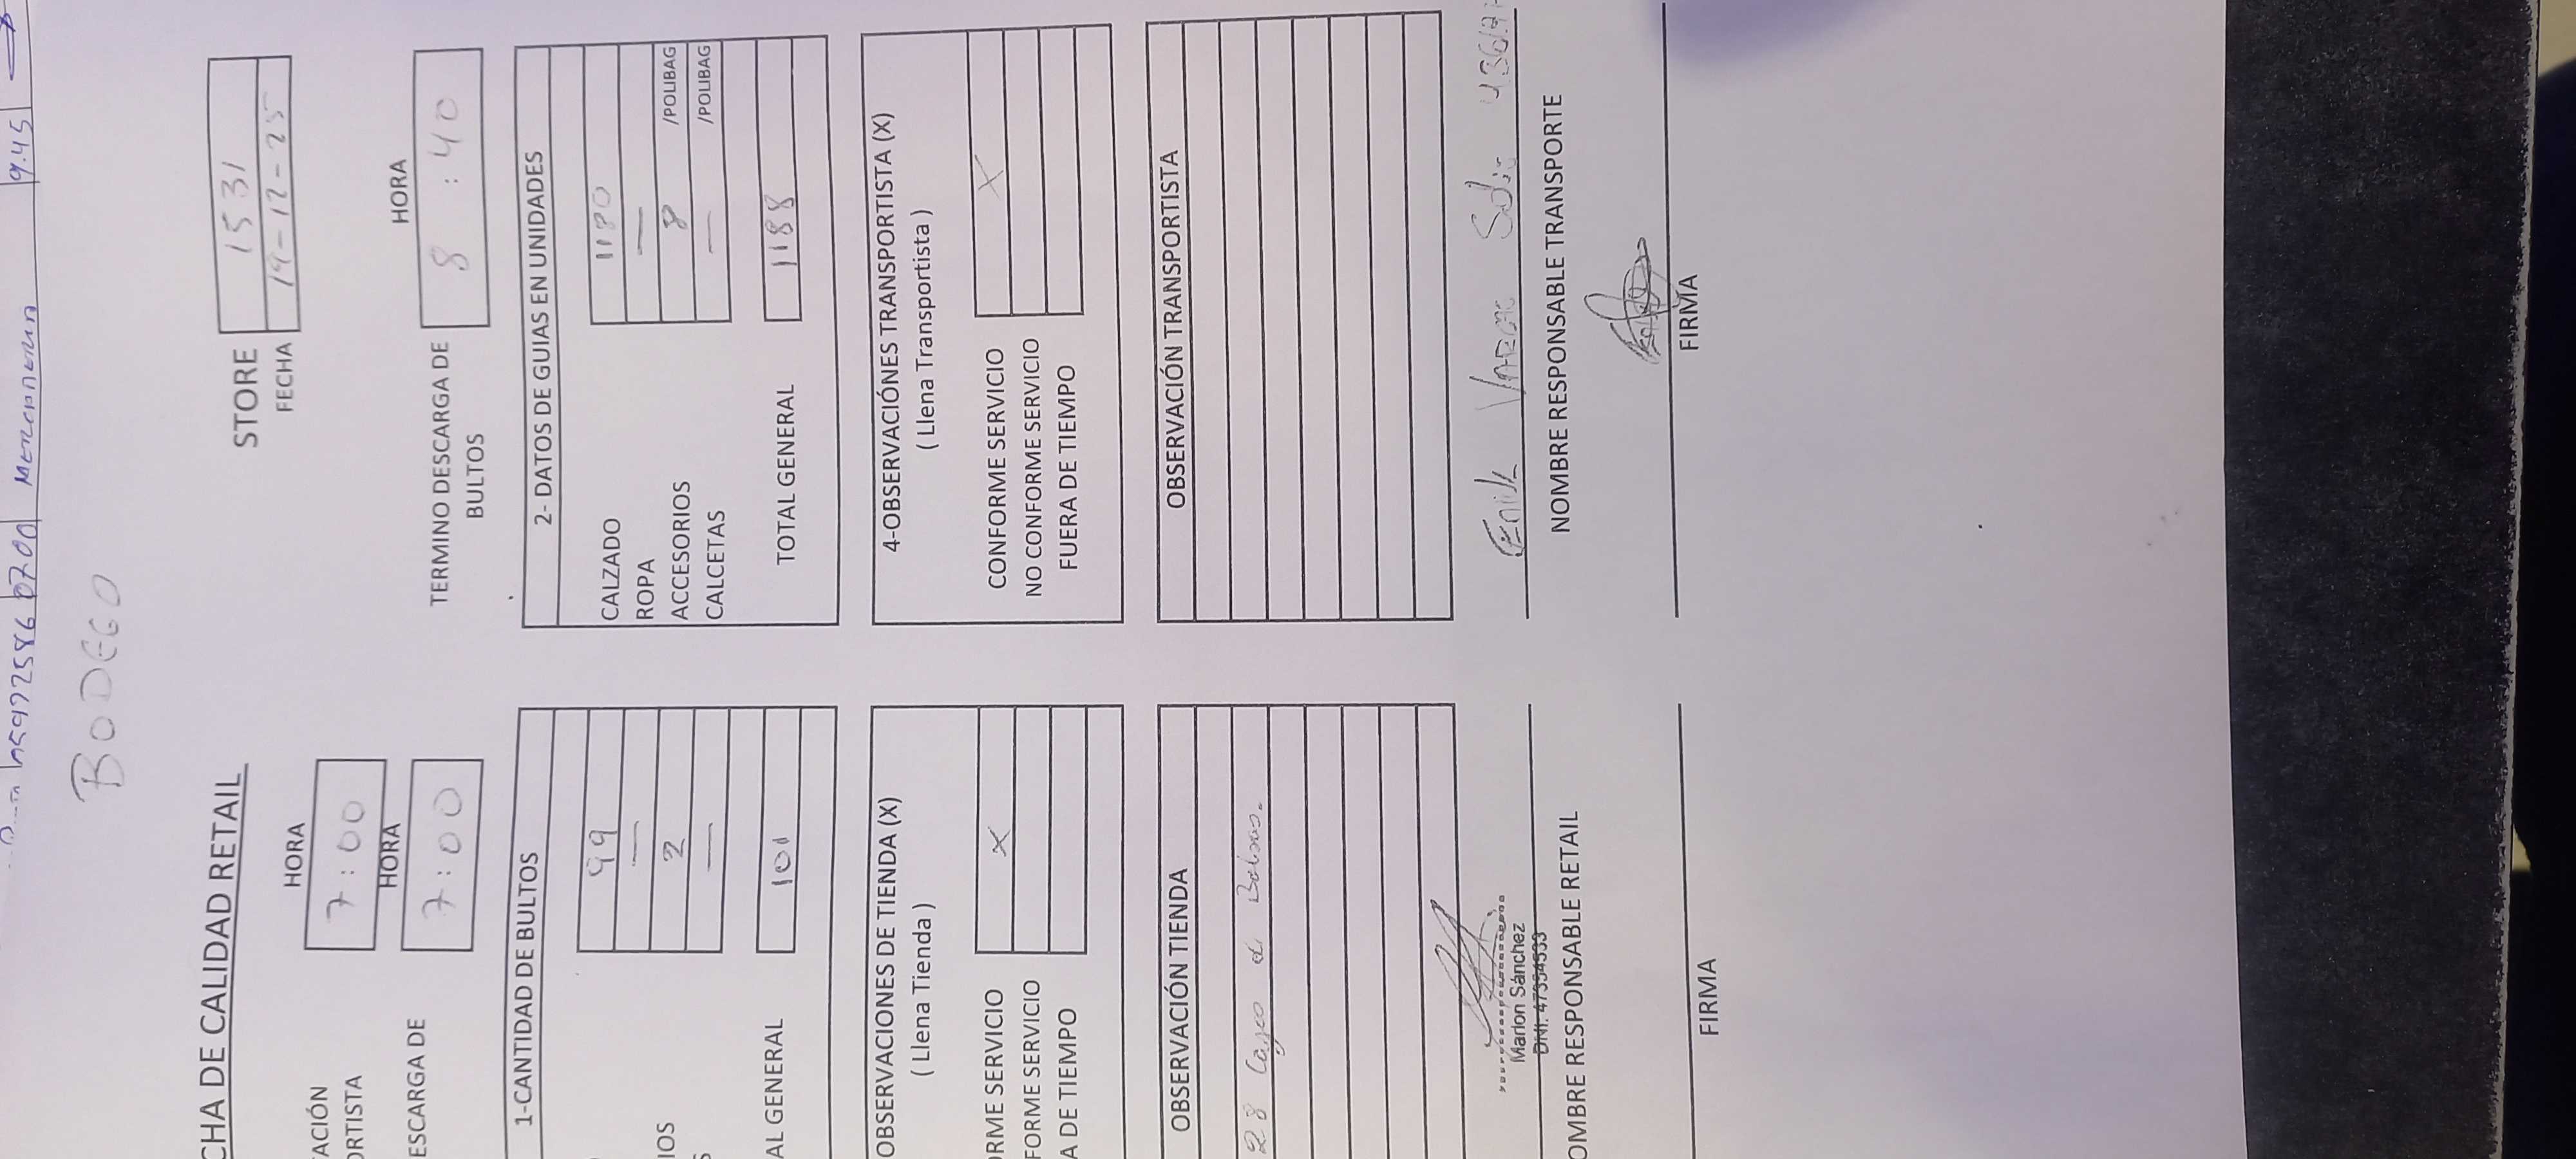 07:00 MERCADERIA 9.45
BODEGO
CHA DE CALIDAD RETAIL
STORE 1531
FECHA 19-12-25
TACIÓN
ORTISTA
HORA
7:00
HORA
ESCARGA DE
7:00
TERMINO DESCARGA DE
BULTOS
HORA
8:40
1-CANTIDAD DE BULTOS
99
—
IOS 2
S —
AL GENERAL 101
2- DATOS DE GUIAS EN UNIDADES
CALZADO 1180
ROPA —
ACCESORIOS 8 /POLIBAG
CALCETAS — /POLIBAG
TOTAL GENERAL 1188
OBSERVACIONES DE TIENDA (X)
( Llena Tienda )
RME SERVICIO X
FORME SERVICIO
A DE TIEMPO
4-OBSERVACIÓNES TRANSPORTISTA (X)
( Llena Transportista )
CONFORME SERVICIO X
NO CONFORME SERVICIO
FUERA DE TIEMPO
OBSERVACIÓN TIENDA
28 Cajas de Bolsas.
OBSERVACIÓN TRANSPORTISTA
Marlon Sánchez
DNI: 47334533
OMBRE RESPONSABLE RETAIL
FIRMA
NOMBRE RESPONSABLE TRANSPORTE
FIRMA